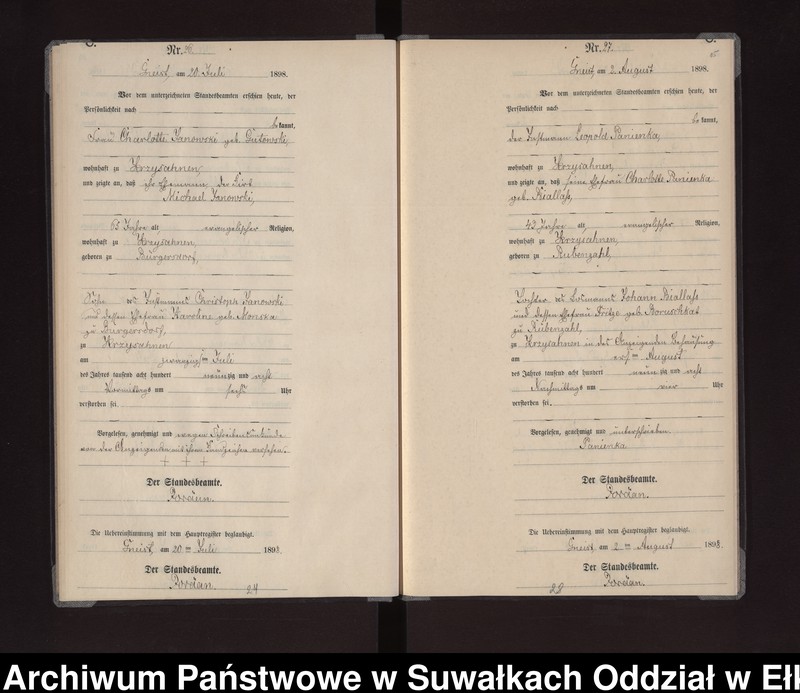 C.
Nr. 26.
Gneist, am 20. Juli 1898.
Vor dem unterzeichneten Standesbeamten erschien heute, der
Persönlichkeit nach
bekannt,
Frau Charlotte Janowski geb. Gutowski,
wohnhaft zu Krzysahnen,
und zeigte an, daß ihr Ehemann, der Wirt
Michael Janowski,
65 Jahre alt evangelischer Religion,
wohnhaft zu Krzysahnen,
geboren zu Bürgersdorf,
Sohn des Christoph Janowski
und dessen Ehefrau Karoline geb. Monska
zu Bürgersdorf,
zu Krzysahnen
am zwanzigsten Juli
des Jahres tausend acht hundert neunzig und acht
Vormittags um sechs Uhr
verstorben sei.
Vorgelesen, genehmigt und wegen Schreibensunkunde
von der Anzeigenden mit ihrem Handzeichen versehen.
+ + +
Der Standesbeamte.
Die Uebereinstimmung mit dem Hauptregister beglaubigt.
Gneist, am 20ten Juli 1898.
Der Standesbeamte.
24
C.
Nr. 27.
Gneist, am 2. August 1898.
Vor dem unterzeichneten Standesbeamten erschien heute, der
Persönlichkeit nach
bekannt,
der Instmann Leopold Panienka,
wohnhaft zu Krzysahnen,
und zeigte an, daß seine Ehefrau Charlotte Panienka
geb. Biallaß,
42 Jahre alt evangelischer Religion,
wohnhaft zu Krzysahnen,
geboren zu Rübenzahl,
Tochter des Losmanns Johann Biallaß
und dessen Ehefrau Fritze geb. Boruschkat
zu Rübenzahl,
zu Krzysahnen in des Anzeigenden Behausung
am August
des Jahres tausend acht hundert neunzig und acht
Nachmittags um vier Uhr
verstorben sei.
Vorgelesen, genehmigt und unterschrieben
Panienka
Der Standesbeamte.
Die Uebereinstimmung mit dem Hauptregister beglaubigt.
Gneist, am 2ten August 1898.
Der Standesbeamte.
Archiwum Państwowe w Suwałkach Oddział w Ełk